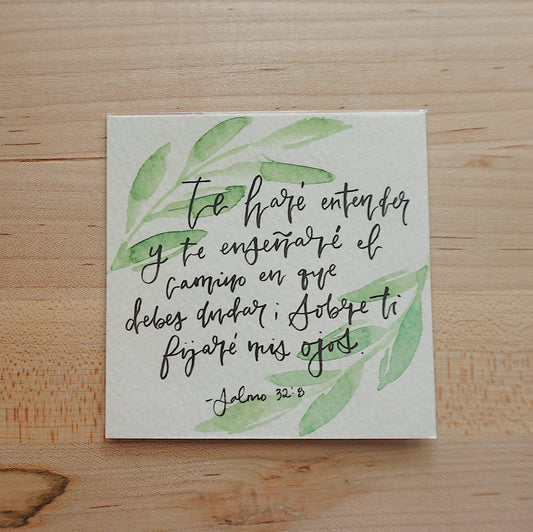 Te haré entender
y te enseñaré el
camino en que
debes andar; Sobre ti
fijaré mis ojos.
-Salmo 32:8